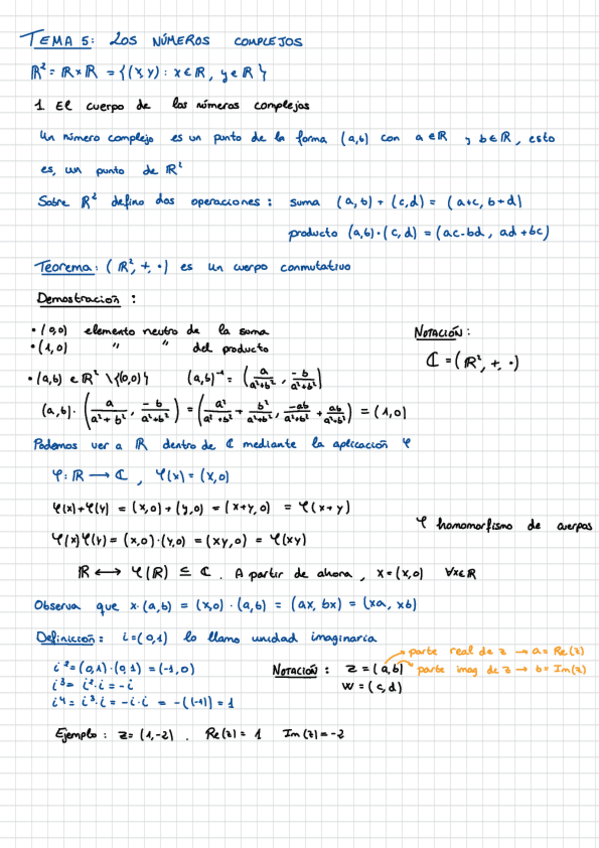 TEMA 5: LOS NÚMEROS COMPLEJOS
ℝ² = ℝ×ℝ = {(x,y) : x∈ℝ, y∈ℝ}
1 El cuerpo de los números complejos
Un número complejo es un punto de la forma (a,b) con a∈ℝ y b∈ℝ, esto
es, un punto de ℝ²
Sobre ℝ² defino dos operaciones: suma (a,b)+(c,d) = (a+c, b+d)
producto (a,b)·(c,d) = (ac-bd, ad+bc)
Teorema: (ℝ², +, ·) es un cuerpo conmutativo
Demostración:
• (0,0) elemento neutro de la suma
• (1,0) " " del producto
NOTACIÓN:
ℂ = (ℝ², +, ·)
• (a,b) ∈ ℝ² \ {(0,0)} (a,b)⁻¹ = (a/(a²+b²), -b/(a²+b²))
(a,b)·(a/(a²+b²), -b/(a²+b²)) = (a²/(a²+b²) + b²/(a²+b²), -ab/(a²+b²) + ab/(a²+b²)) = (1,0)
Podemos ver a ℝ dentro de ℂ mediante la aplicación φ
φ: ℝ → ℂ, φ(x) = (x,0)
φ(x)+φ(y) = (x,0)+(y,0) = (x+y,0) = φ(x+y)
φ homomorfismo de cuerpos
φ(x)φ(y) = (x,0)·(y,0) = (xy,0) = φ(xy)
ℝ ↔ φ(ℝ) ⊆ ℂ. A partir de ahora, x = (x,0) ∀x∈ℝ
Observa que x·(a,b) = (x,0)·(a,b) = (ax, bx) = (xa, xb)
Definición: i = (0,1) lo llamo unidad imaginaria
i² = (0,1)·(0,1) = (-1,0)
i³ = i²·i = -i
i⁴ = i³·i = -i·i = -(-1) = 1
NOTACIÓN: z = (a,b)
w = (c,d)
parte real de z → a = Re(z)
parte imag de z → b = Im(z)
Ejemplo: z = (1,-2). Re(z) = 1 Im(z) = -2